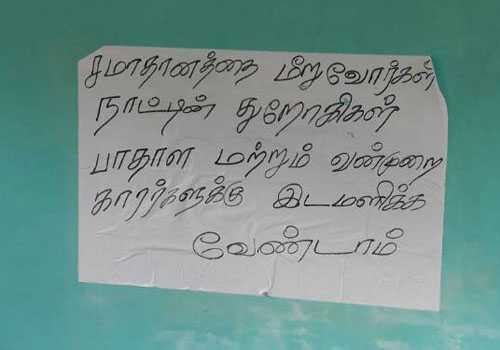 சமாதானத்தை மீறுவோர்கள்
நாட்டின் துறோகிகள்
பாதாள மற்றும் வன்முறை
காரர்களுக்கு இடமளிக்க
வேண்டாம்